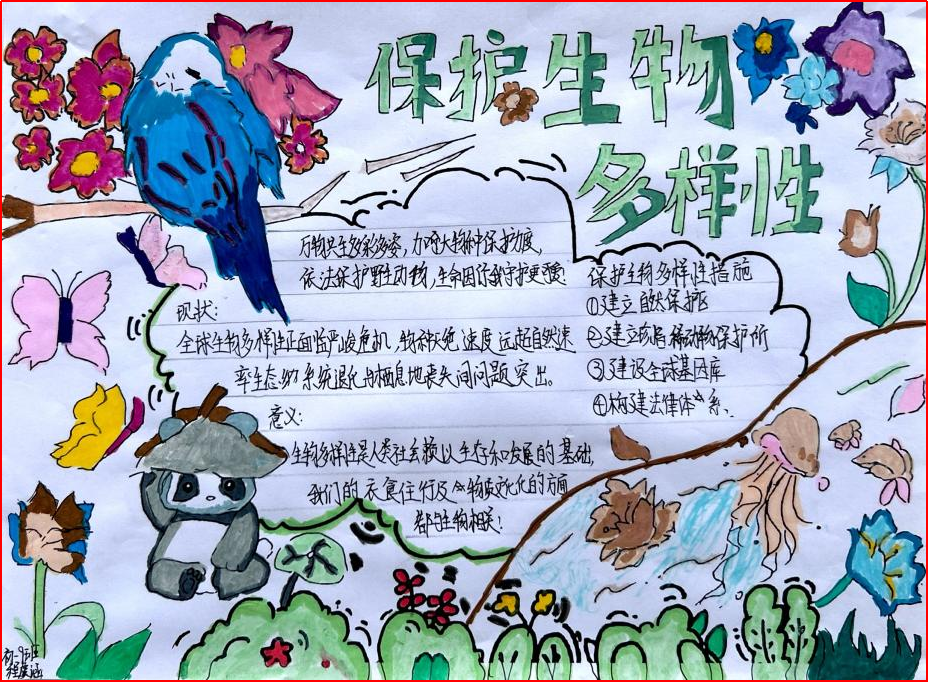 保护生物
多样性
万物共生多彩多姿，力呼大物种保护力度，
依法保护野生动物，生命因你我守护更

保护生物多样性措施
①建立自然保护区
②建立珍稀动物保护所
③建设全球基因库
④构建法律体系、
现状：
全球生物多样性正面临严峻危机，物种灭绝速度远超自然速
率生态系统退化与栖息地丧失间问题突出。
意义：
生物多样性是人类社会赖以生存和发展的基础，
我们的衣食住行及物质文化的方面
都与生物相关！
初一9班